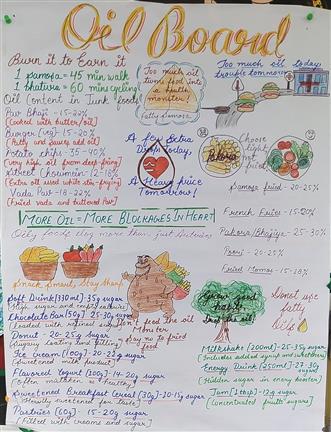 Oil Board
Burn it to Earn it
1 samosa = 45 min walk
1 bhatura = 60 mins cycling
Oil Content in Junk foods
Pav Bhaji - 15-22%
(Cooked with butter/oil)
Burger (veg) - 15-20%
(Patty and sauce add oil)
Potato chips - 35-40%
(Very high oil from deep-frying)
Street Chowmein - 12-18%
(Extra oil used while stir-frying)
Vada Pav - 18-22%
(Fried vada and buttered Pav)
Too much
oil turns food
into a
health
monster!
Fatty Samosa
Too much oil today,
trouble tomorrow
A few Extra
Drops Today,
A Heavy price
Tomorrow!
Pakora
Choose
light
not
fried
Samosa fried - 20-25%
French Fries - 15-20%
Pakora/Bhajiya - 25-30%
Poori - 20-25%
Fried Momos - 15-18%
MORE OIL = MORE BLOCKAGES IN HEART
Oily foods clog more than just Arteries
Snack Smart, Stay Sharp
Soft Drink (330ml) - 35g sugar
(High sugar and empty calories)
Chocolate Bar (50g) - 25-30g sugar
(Loaded with refined sugar)
Donut - 20-25g sugar
(Sugary coating and filling)
Ice cream (100g) - 20-22g sugar
(Sweetened milk product)
Flavored Yogurt (100g) - 14-20g sugar
(Often mistaken as healthy)
Sweetened Breakfast Cereal (30g) - 10-15g sugar
(Heavily sweetened for taste)
Pastries (60g) - 15-20g sugar
(Filled with creams and sugar)
Don't feed the oil
Monster
Say no to fried
food
Grow good
habits,
Drop the oil
Donot use
fatty
Oils
Milkshake (200ml) - 25-35g sugar
(Includes added syrup and sweeteners)
Energy Drink (250ml) - 27-30g
sugar
(Hidden sugar in every booster)
Jam (1 tbsp) - 12g sugar
(Concentrated fruit sugars)